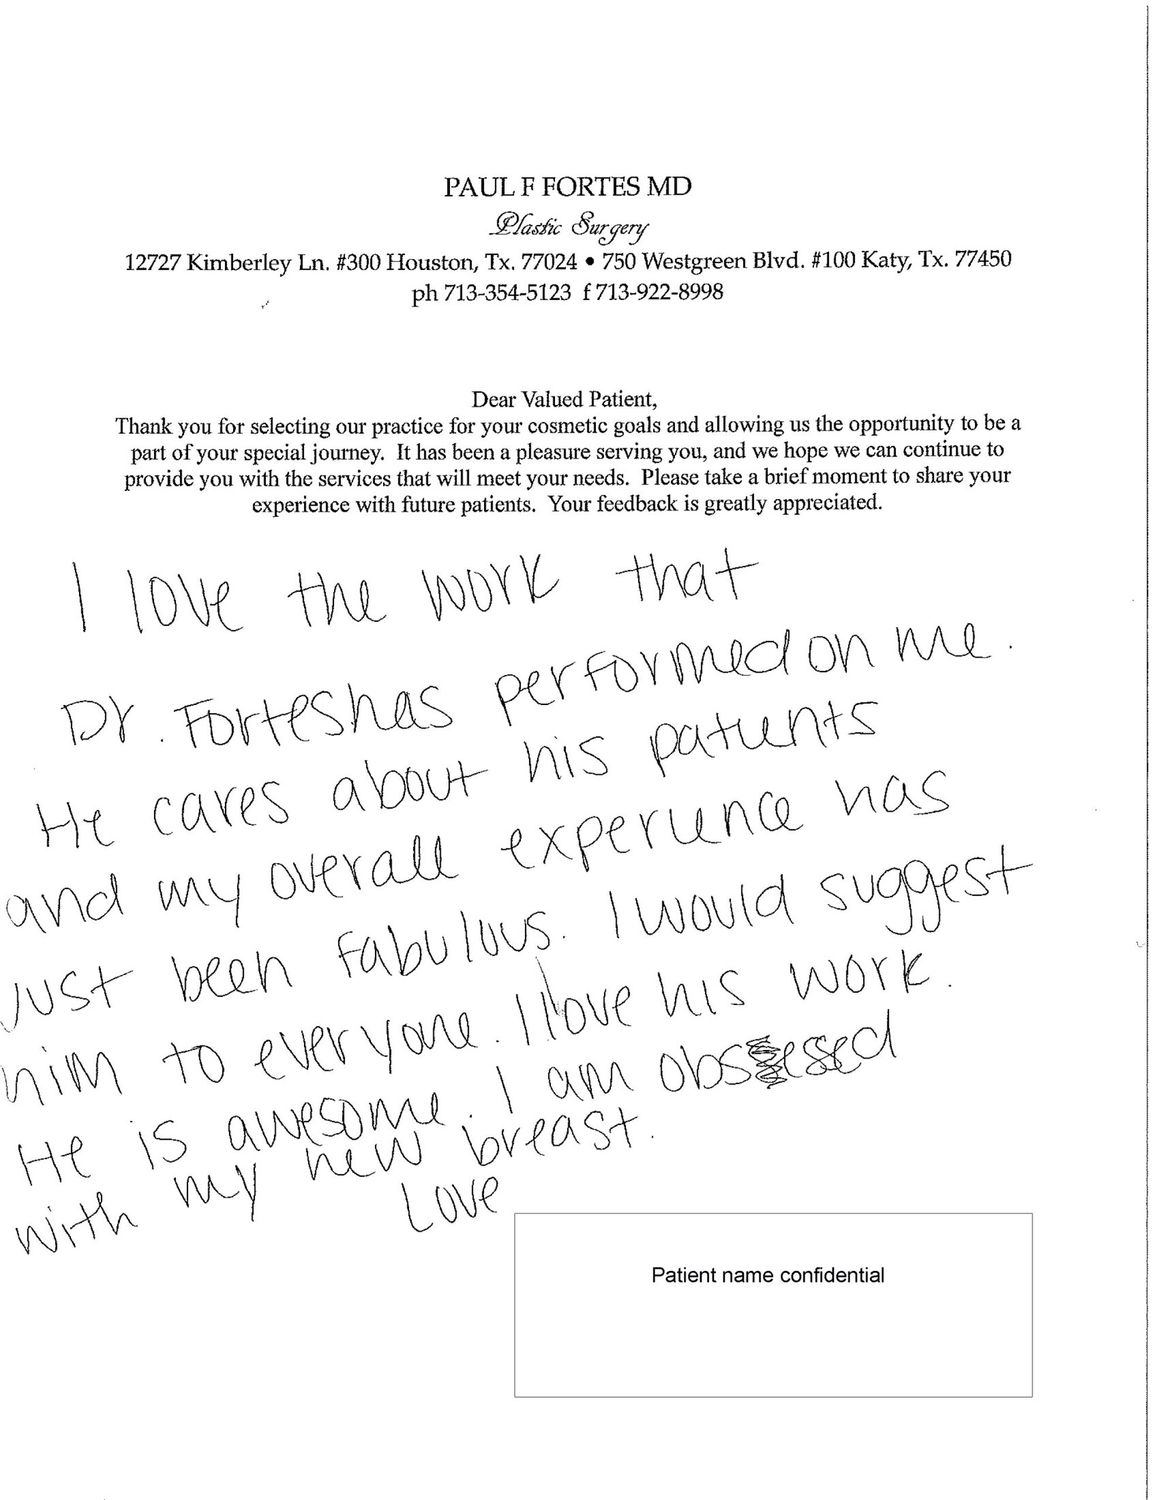 PAUL F FORTES MD
Plastic Surgery
12727 Kimberley Ln. #300 Houston, Tx. 77024 • 750 Westgreen Blvd. #100 Katy, Tx. 77450
ph 713-354-5123 f 713-922-8998
Dear Valued Patient,
Thank you for selecting our practice for your cosmetic goals and allowing us the opportunity to be a
part of your special journey. It has been a pleasure serving you, and we hope we can continue to
provide you with the services that will meet your needs. Please take a brief moment to share your
experience with future patients. Your feedback is greatly appreciated.
I love the work that
Dr. Fortes has performed on me.
He cares about his patients
and my overall experience has
just been fabulous. I would suggest
him to everyone. I love his work.
He is awesome. I am obsessed
with my new breast.
Love
Patient name confidential